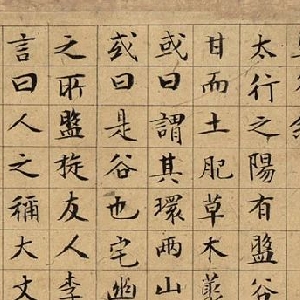 太行之陽有盤谷
甘而土肥草木藂
或曰謂其環兩山
或曰是谷也宅幽
之所盤旋友人李
言曰人之稱大丈